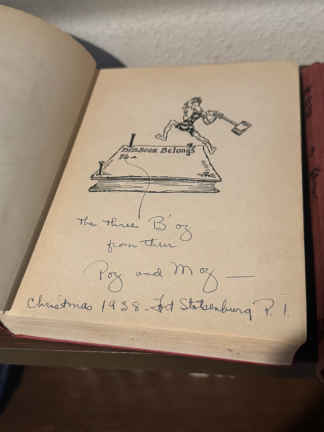 This Book Belongs
To—
The three B'oz
from their
Poz and Moz —
Christmas 1938 - Fort Stotsenburg P. I.